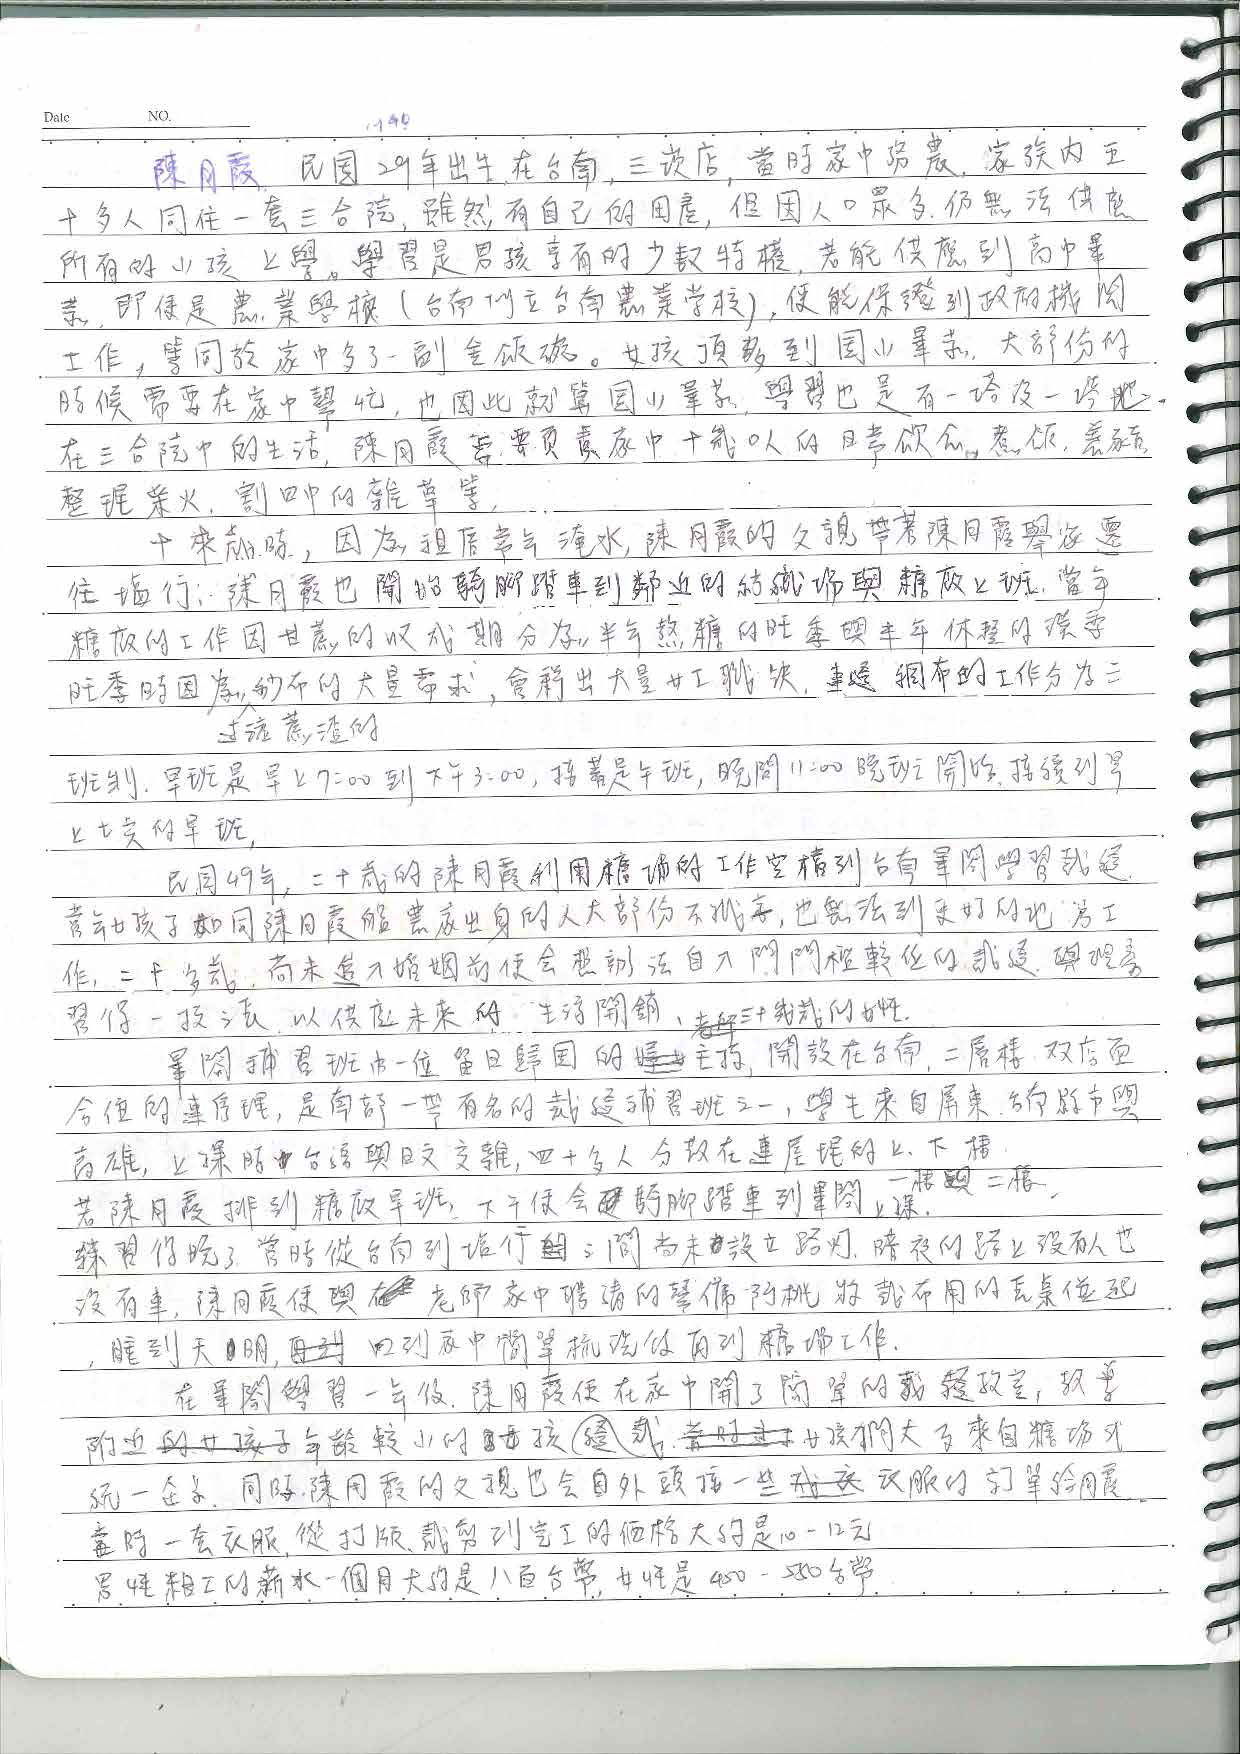 Date NO.
1940
陳月霞, 民国29年出生在台南, 三崁店, 當時家中務農, 家族內五
十多人同住一套三合院, 雖然有自己的田產, 但因人口眾多, 仍無法供應
所有的小孩上學。學習是男孩享有的少數特權, 若能供應到高中畢
業, 即便是農業學校(台南州立台南農業学校), 便能保證到政府機関
工作, 等同於家中多了一副金飯碗。女孩頂多到国小畢業, 大部份的
時候需要在家中幫忙, 也因此就算国小畢業, 學習也是有一搭沒一搭地.
在三合院中的生活, 陳月霞需要負責家中十幾口人的日常飲食。煮飯, 養豬,
整理柴火, 割田中的雜草等,
十來歲時, 因為祖厝常年淹水, 陳月霞的父親帶著陳月霞舉家遷
往塩行; 陳月霞也開始騎腳踏車到鄰近的紡織場與糖廠上班. 當年
糖廠的工作因甘蔗的收成期分為半年熬糖的旺季與半年休整的淡季
旺季時因為紗布的大量需求, 會釋出大量女工職缺, 縫網布的工作分為三
過濾蔗渣的
班制. 早班是早上7:00到下午3:00, 接著是午班, 晚間11:00晚班開始, 接續到早
上七点的早班,
民国49年, 二十歲的陳月霞利用糖場的工作空檔到台南畢閣學習裁縫.
當年女孩子如同陳月霞般農家出身的人大部份不識字, 也無法到更好的地方工
作, 二十多歲, 尚未進入婚姻前便會想辦法自入門門檻較低的裁縫與理髮
習得一技之長, 以供應未來的生活開銷,
三十幾歲的女性.
畢閣補習班由一位留日歸国的主持, 開設在台南, 二層樓, 双店面
合併的連店裡, 是南部一帶有名的裁縫補習班之一, 學生來自屏東, 台南縣市與
高雄, 上課時台語與日文交雜, 四十多人分散在連屋埕的上、下樓.
一樓與二樓.
若陳月霞排到糖廠早班, 下午便會騎腳踏車到畢閣上課.
練習得晚了, 當時從台南到塩行之間尚未設立路灯, 暗夜的路上沒有人也
沒有車, 陳月霞便與老師家中聘請的幫傭阿桃將裁布用的長桌併起
, 睡到天明, 回到家中簡單梳洗後再到糖場工作.
在畢閣學習一年後, 陳月霞便在家中開了簡單的裁縫教室, 教導
附近的女孩子年齡較小的女孩縫裁. 當時 女孩們大多來自糖場或
統一企業. 同時, 陳月霞的父親也会自外頭接一些衣服的訂單給月霞
當時一套衣服, 從打版、裁剪到完工的価格大約是10-12元
男性粗工的薪水一個月大約是八百台幣, 女性是450-550台幣